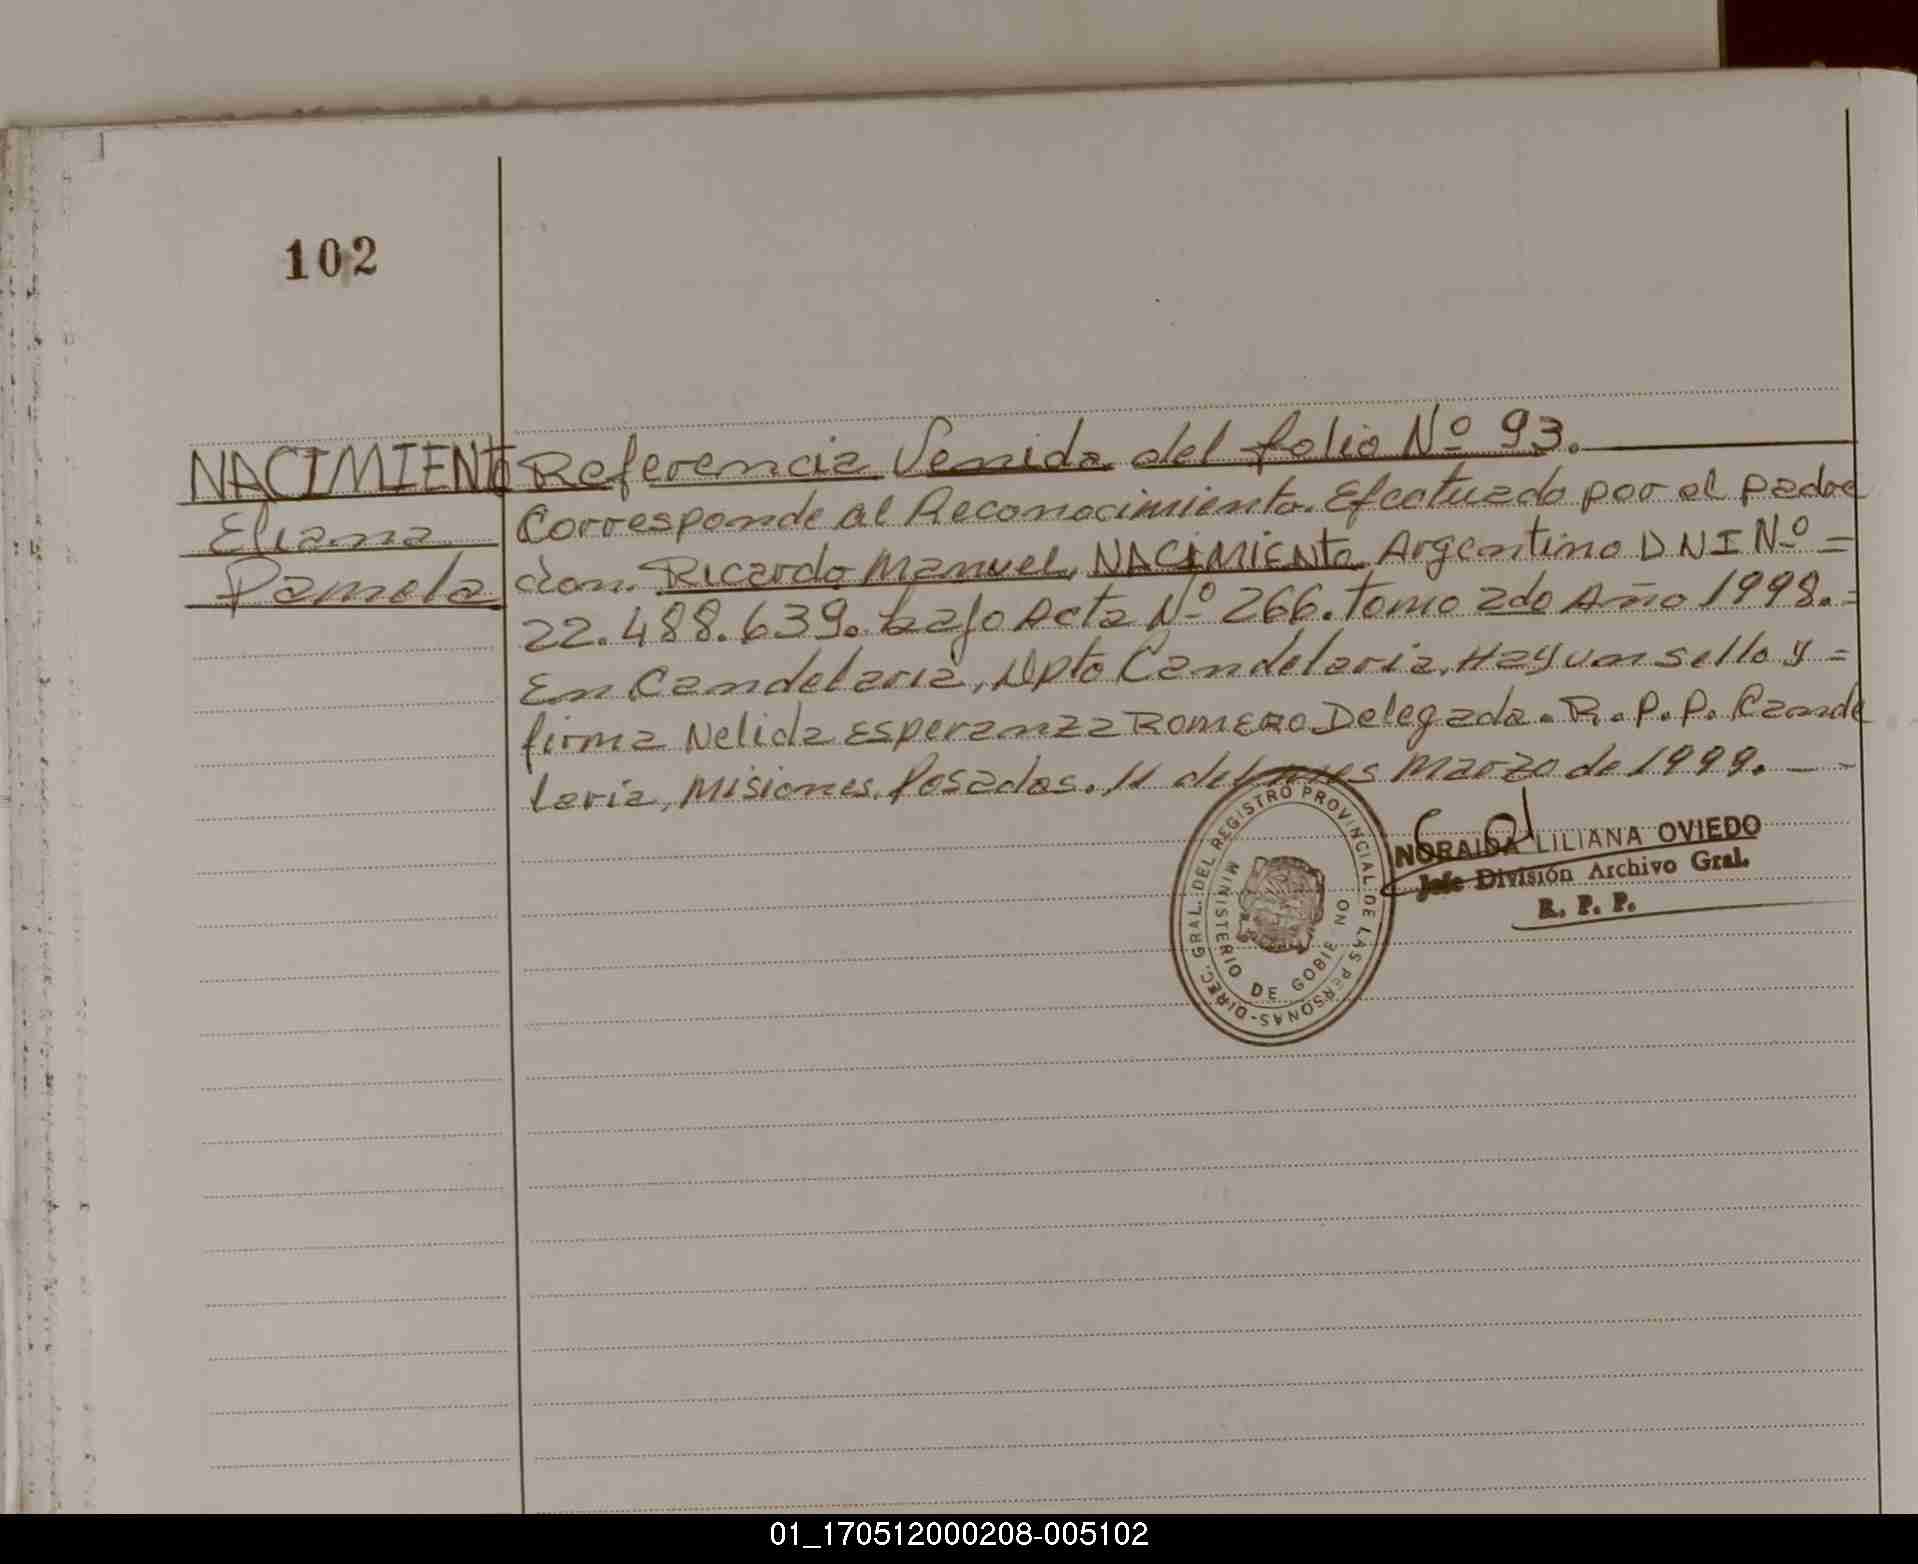 102
NACIMIENTO
Eliana
Pamela
Referencia Venida del folio Nº 93.
Corresponde al Reconocimiento. Efectuado por el padre
don. Ricardo Manuel, NACIMIENTO Argentino DNI Nº =
22.488.639. bajo Acta Nº 266. tomo 2do Año 1998. =
En Candelaria, Dpto Candelaria, Hay un sello y =
firma Nelida Esperanza ROMERO Delegada. R. P. P. Cande
laria, Misiones, Posadas. 11 del mes Marzo de 1999. — -
DIREC. GRAL. DEL REGISTRO PROVINCIAL DE LAS PERSONAS-
MINISTERIO DE GOBIE NO
NORAIDA LILIANA OVIEDO
Jefe División Archivo Gral.
R. P. P.
01_170512000208-005102